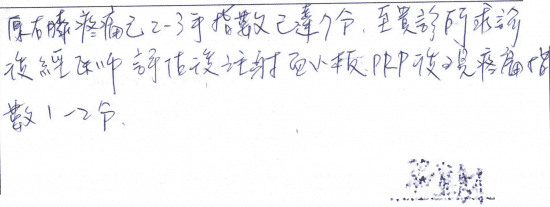 原右膝疼痛已2-3年指數已達7分,至貴診所求診
後經医师評估後注射血小板PRP後現疼痛指
數1-2分.